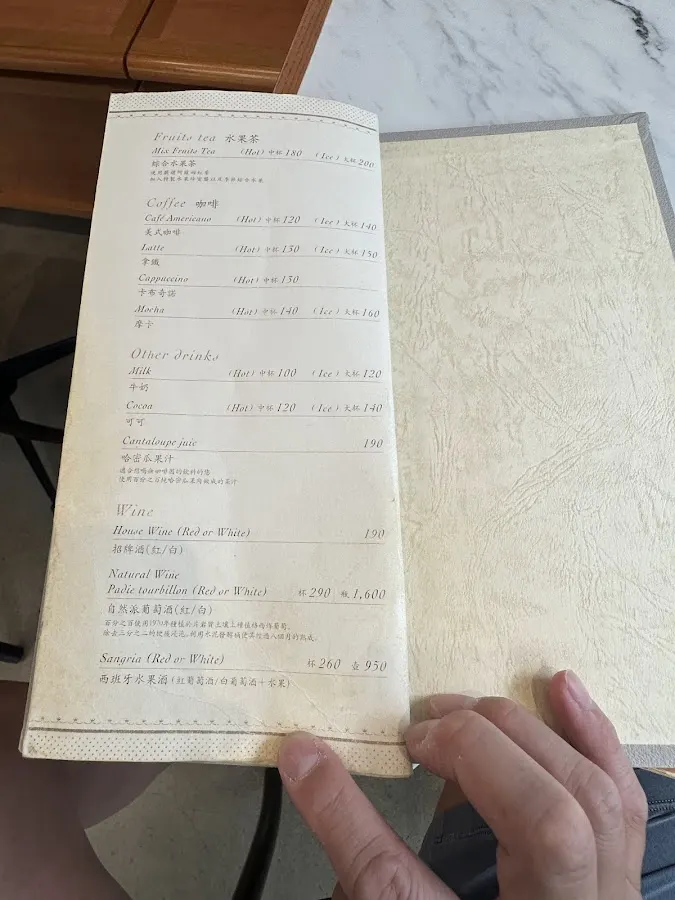 Fruits tea 水果茶
Mix Fruits Tea (Hot) 中杯 180 (Ice) 大杯 200
綜合水果茶
Coffee 咖啡
Café Americano (Hot) 中杯 120 (Ice) 大杯 140
美式咖啡
Latte (Hot) 中杯 130 (Ice) 大杯 150
拿鐵
Cappuccino (Hot) 中杯 130
卡布奇諾
Mocha (Hot) 中杯 140 (Ice) 大杯 160
摩卡
Other drinks
Milk (Hot) 中杯 100 (Ice) 大杯 120
牛奶
Cocoa (Hot) 中杯 120 (Ice) 大杯 140
可可
Cantaloupe juic 190
哈密瓜果汁
適合想喝非咖啡因的飲料的您
使用百分之百純哈密瓜果肉做成的果汁
Wine
House Wine (Red or White) 190
招牌酒(紅/白)
Natural Wine
Padie tourbillon (Red or White) 杯 290 瓶 1,600
自然派葡萄酒(紅/白)
Sangria (Red or White) 杯 260 壺 950
西班牙水果酒 (紅葡萄酒/白葡萄酒+水果)